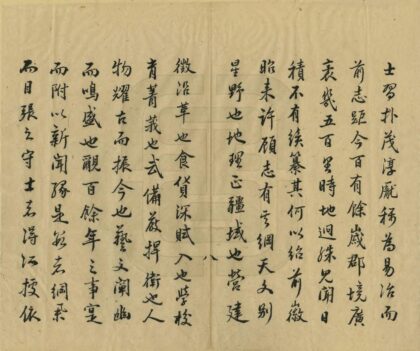 士習朴茂淳龐稱為易治而
前志距今百有餘歲郡境廣
袤幾五百里時地迥殊見聞日
積不有續纂其何以紹前徽
昭來許顧志有綱天文別
星野也地理正疆域也營建
八
徵沿革也食貨深賦入也學校
育菁莪也武備嚴捍衛也人
物耀古而振今也藝文闡幽
而鳴盛也觀百餘年之事寔
而附以新聞緣是志綱舉
而目張之守士者得依